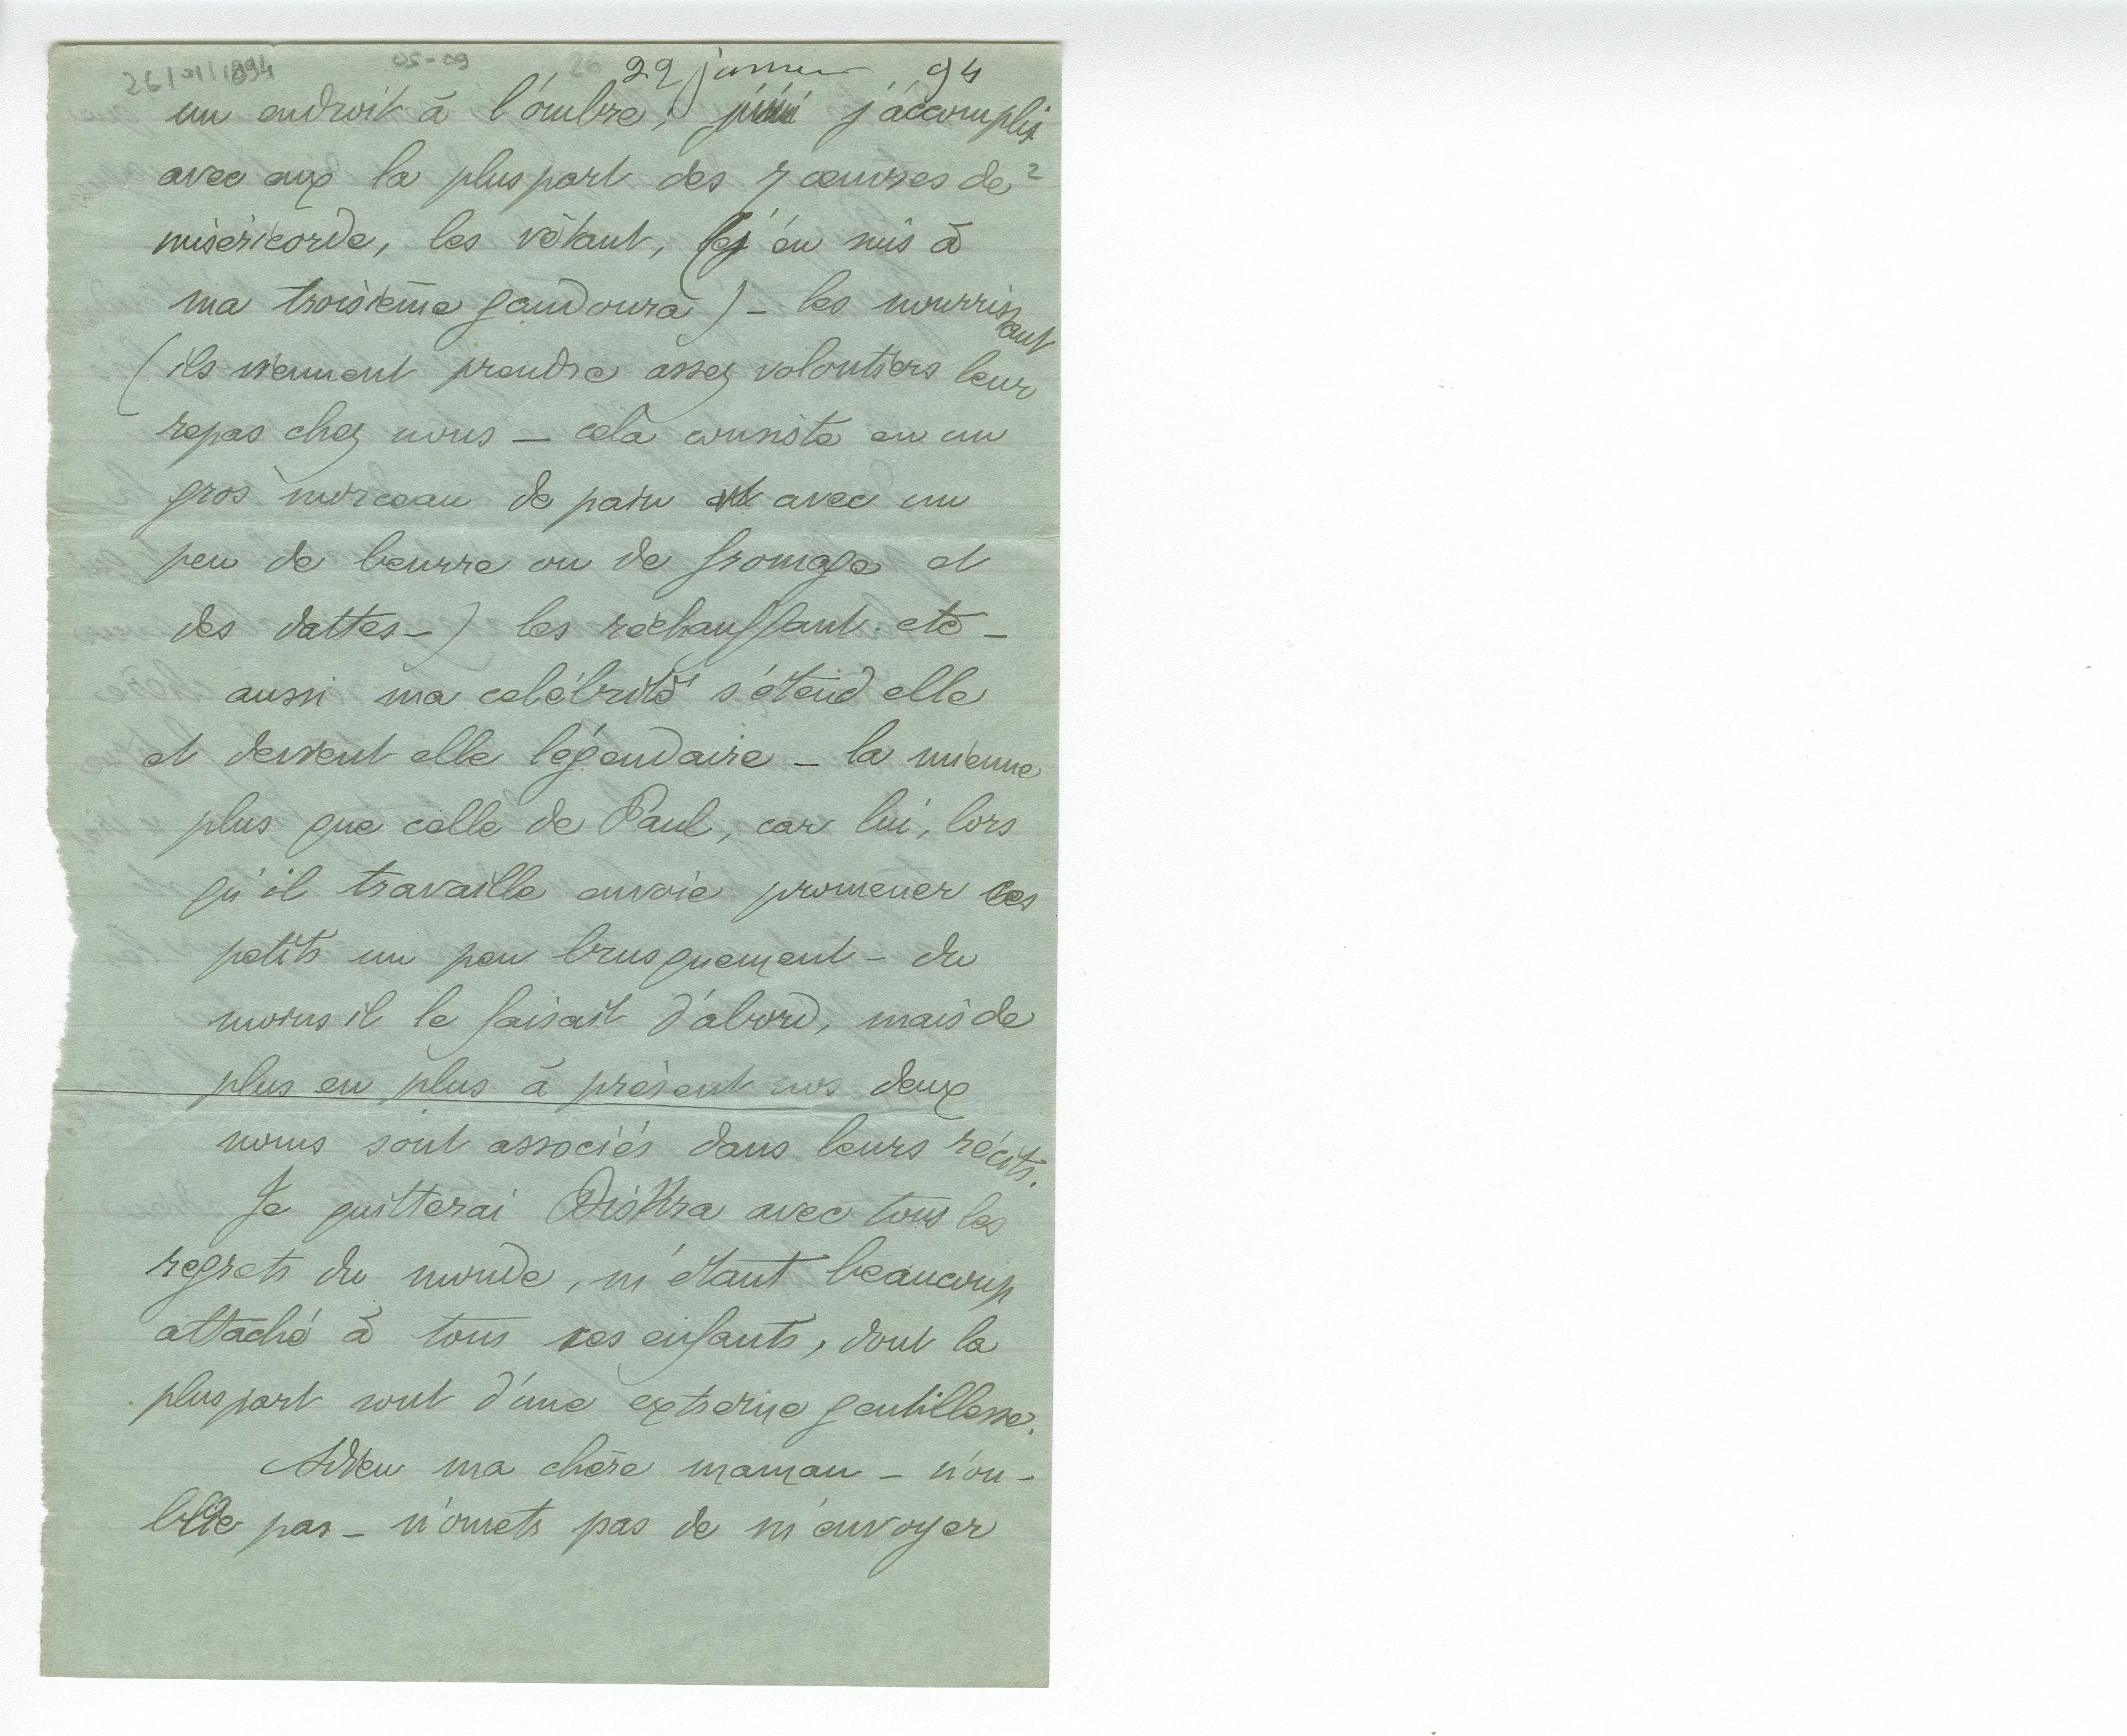 26/01/1894 05-09 26 22 janvier 94
un endroit à l'ombre; j'accomplis
avec eux la pluspart des 7 œuvres de 2
miséricorde, les vêtant, (j'en suis à
ma troisième gandoura) - les nourrissant
(ils viennent prendre assez volontiers leur
repas chez nous - celà consiste en un
gros morceau de pain avec un
peu de beurre ou de fromage et
des dattes -) les réchauffant. etc -
aussi ma célébrité s'étend elle
et devient elle légendaire - la mienne
plus que celle de Paul, car lui, lors
qu'il travaille envoie promener ces
petits un peu brusquement - du
moins il le faisait d'abord, mais de
plus en plus à présent nos deux
noms sont associés dans leurs récits.
Je quitterai Biskra avec tous les
regrets du monde, m'étant beaucoup
attaché à tous ces enfants, dont la
pluspart sont d'une extreme gentillesse.
Adieu ma chère maman - n'ou-
blie pas - n'omets pas de m'envoyer